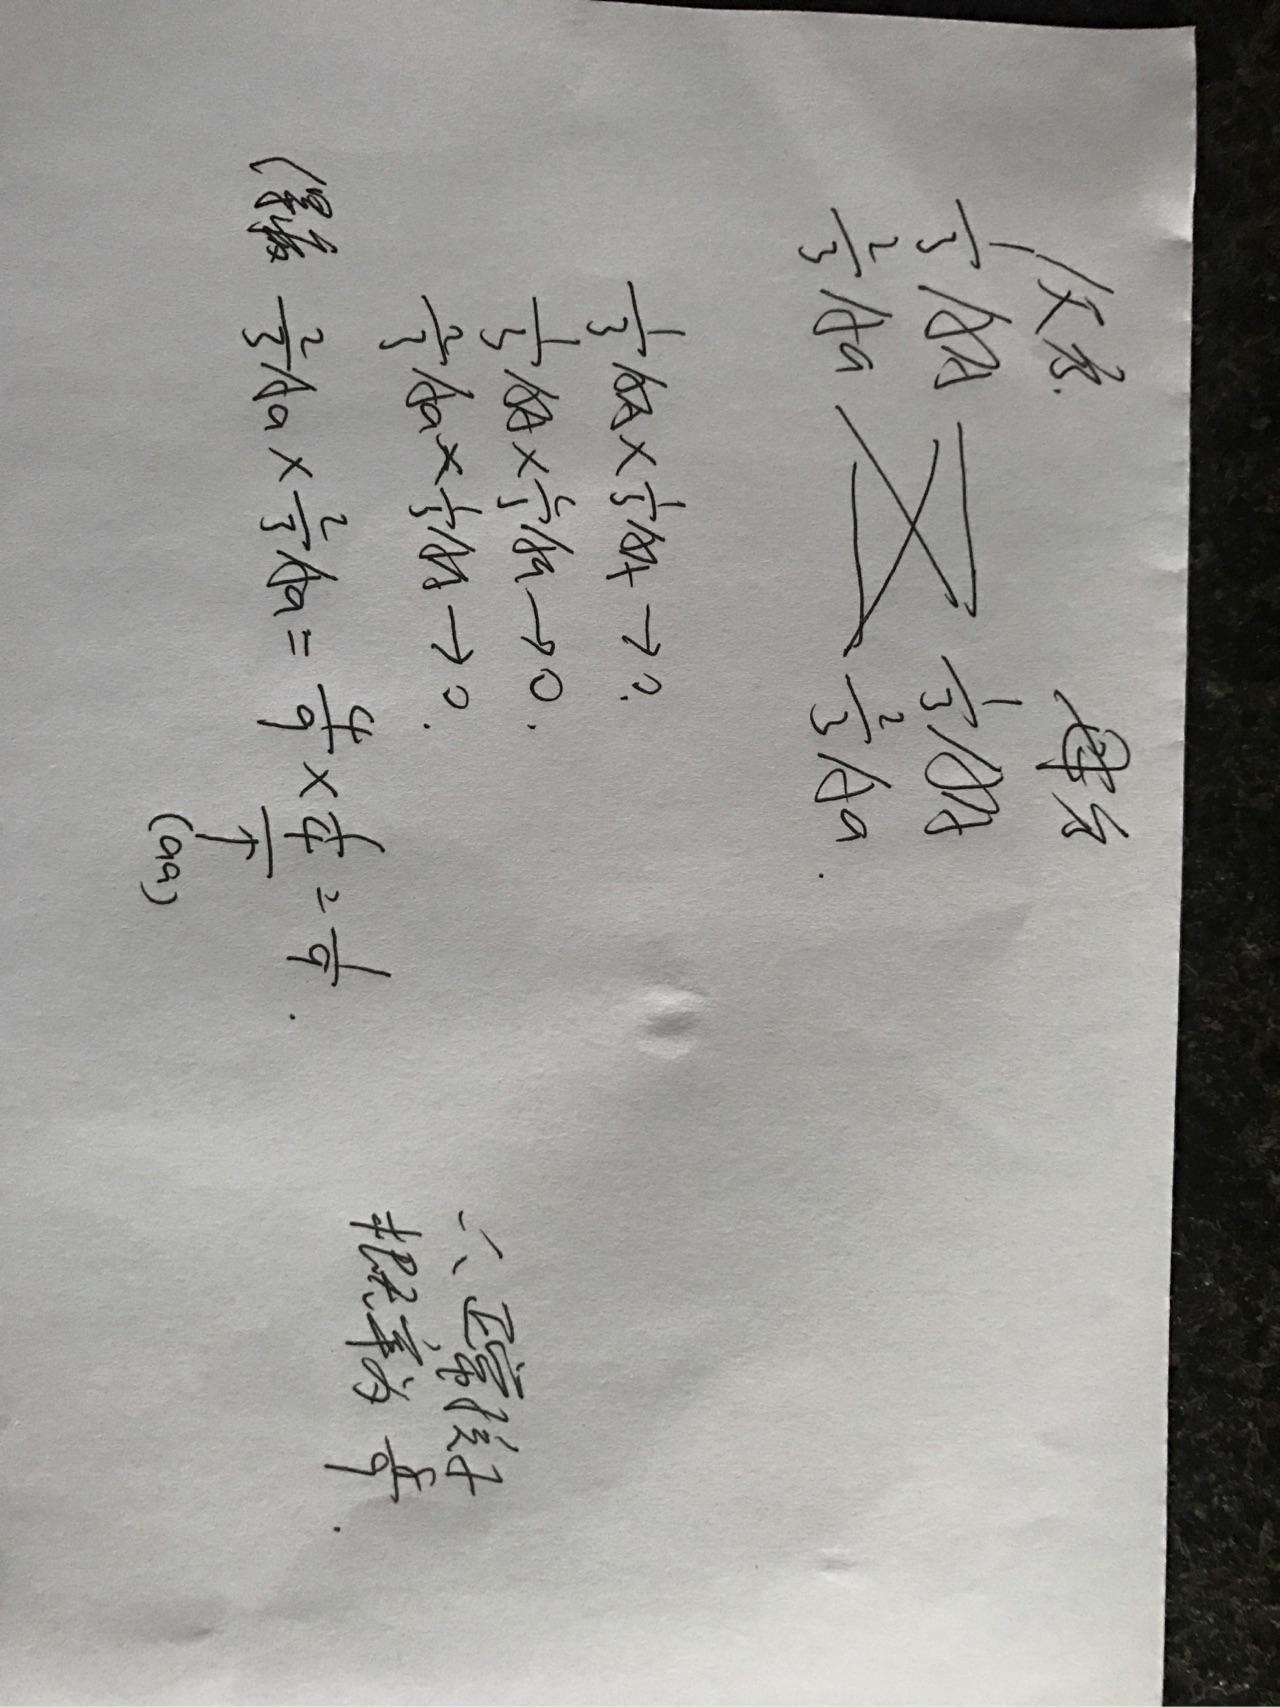 父方. 母方
1/3 AA 1/3 AA
2/3 Aa 2/3 Aa.
1/3 AA × 1/3 AA → 0.
1/3 AA × 2/3 Aa → 0.
2/3 Aa × 1/3 AA → 0.
2/3 Aa × 2/3 Aa = 4/9 × 1/4 = 1/9.
↑
(aa)
∴ 正常孩子
概率为 8/9.